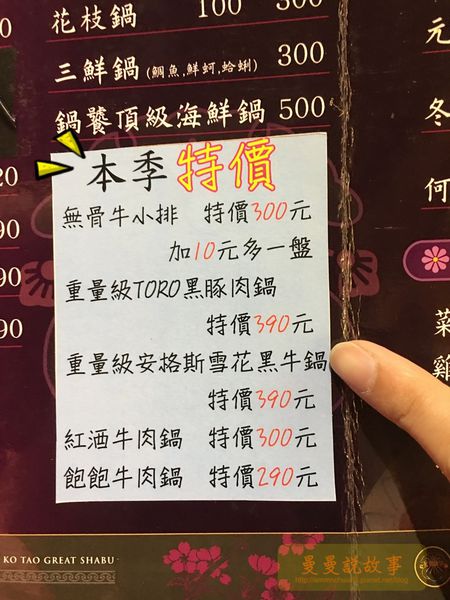 花枝鍋 100 300
三鮮鍋(鯛魚,鮮蚵,蛤蜊) 300
鍋饕頂級海鮮鍋 500
本季特價
無骨牛小排 特價300元
加10元多一盤
重量級TORO黑豚肉鍋
特價390元
重量級安格斯雪花黑牛鍋
特價390元
紅酒牛肉鍋 特價300元
飽飽牛肉鍋 特價290元
20
90
90
元
冬
何
菜
雞
KO TAO GREAT SHABU
曼曼說故事